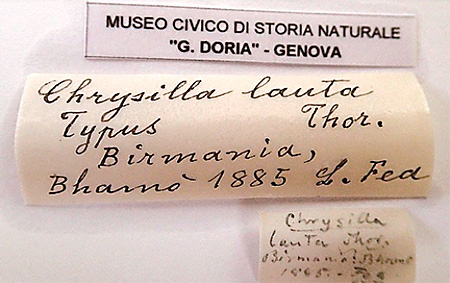 MUSEO CIVICO DI STORIA NATURALE
"G. DORIA" - GENOVA
Chrysilla lauta
Typus Thor.
Birmania,
Bhamò 1885 L. Fea
Chrysilla
lauta Thor.
Birmania: Bhamò
1885. - Fea